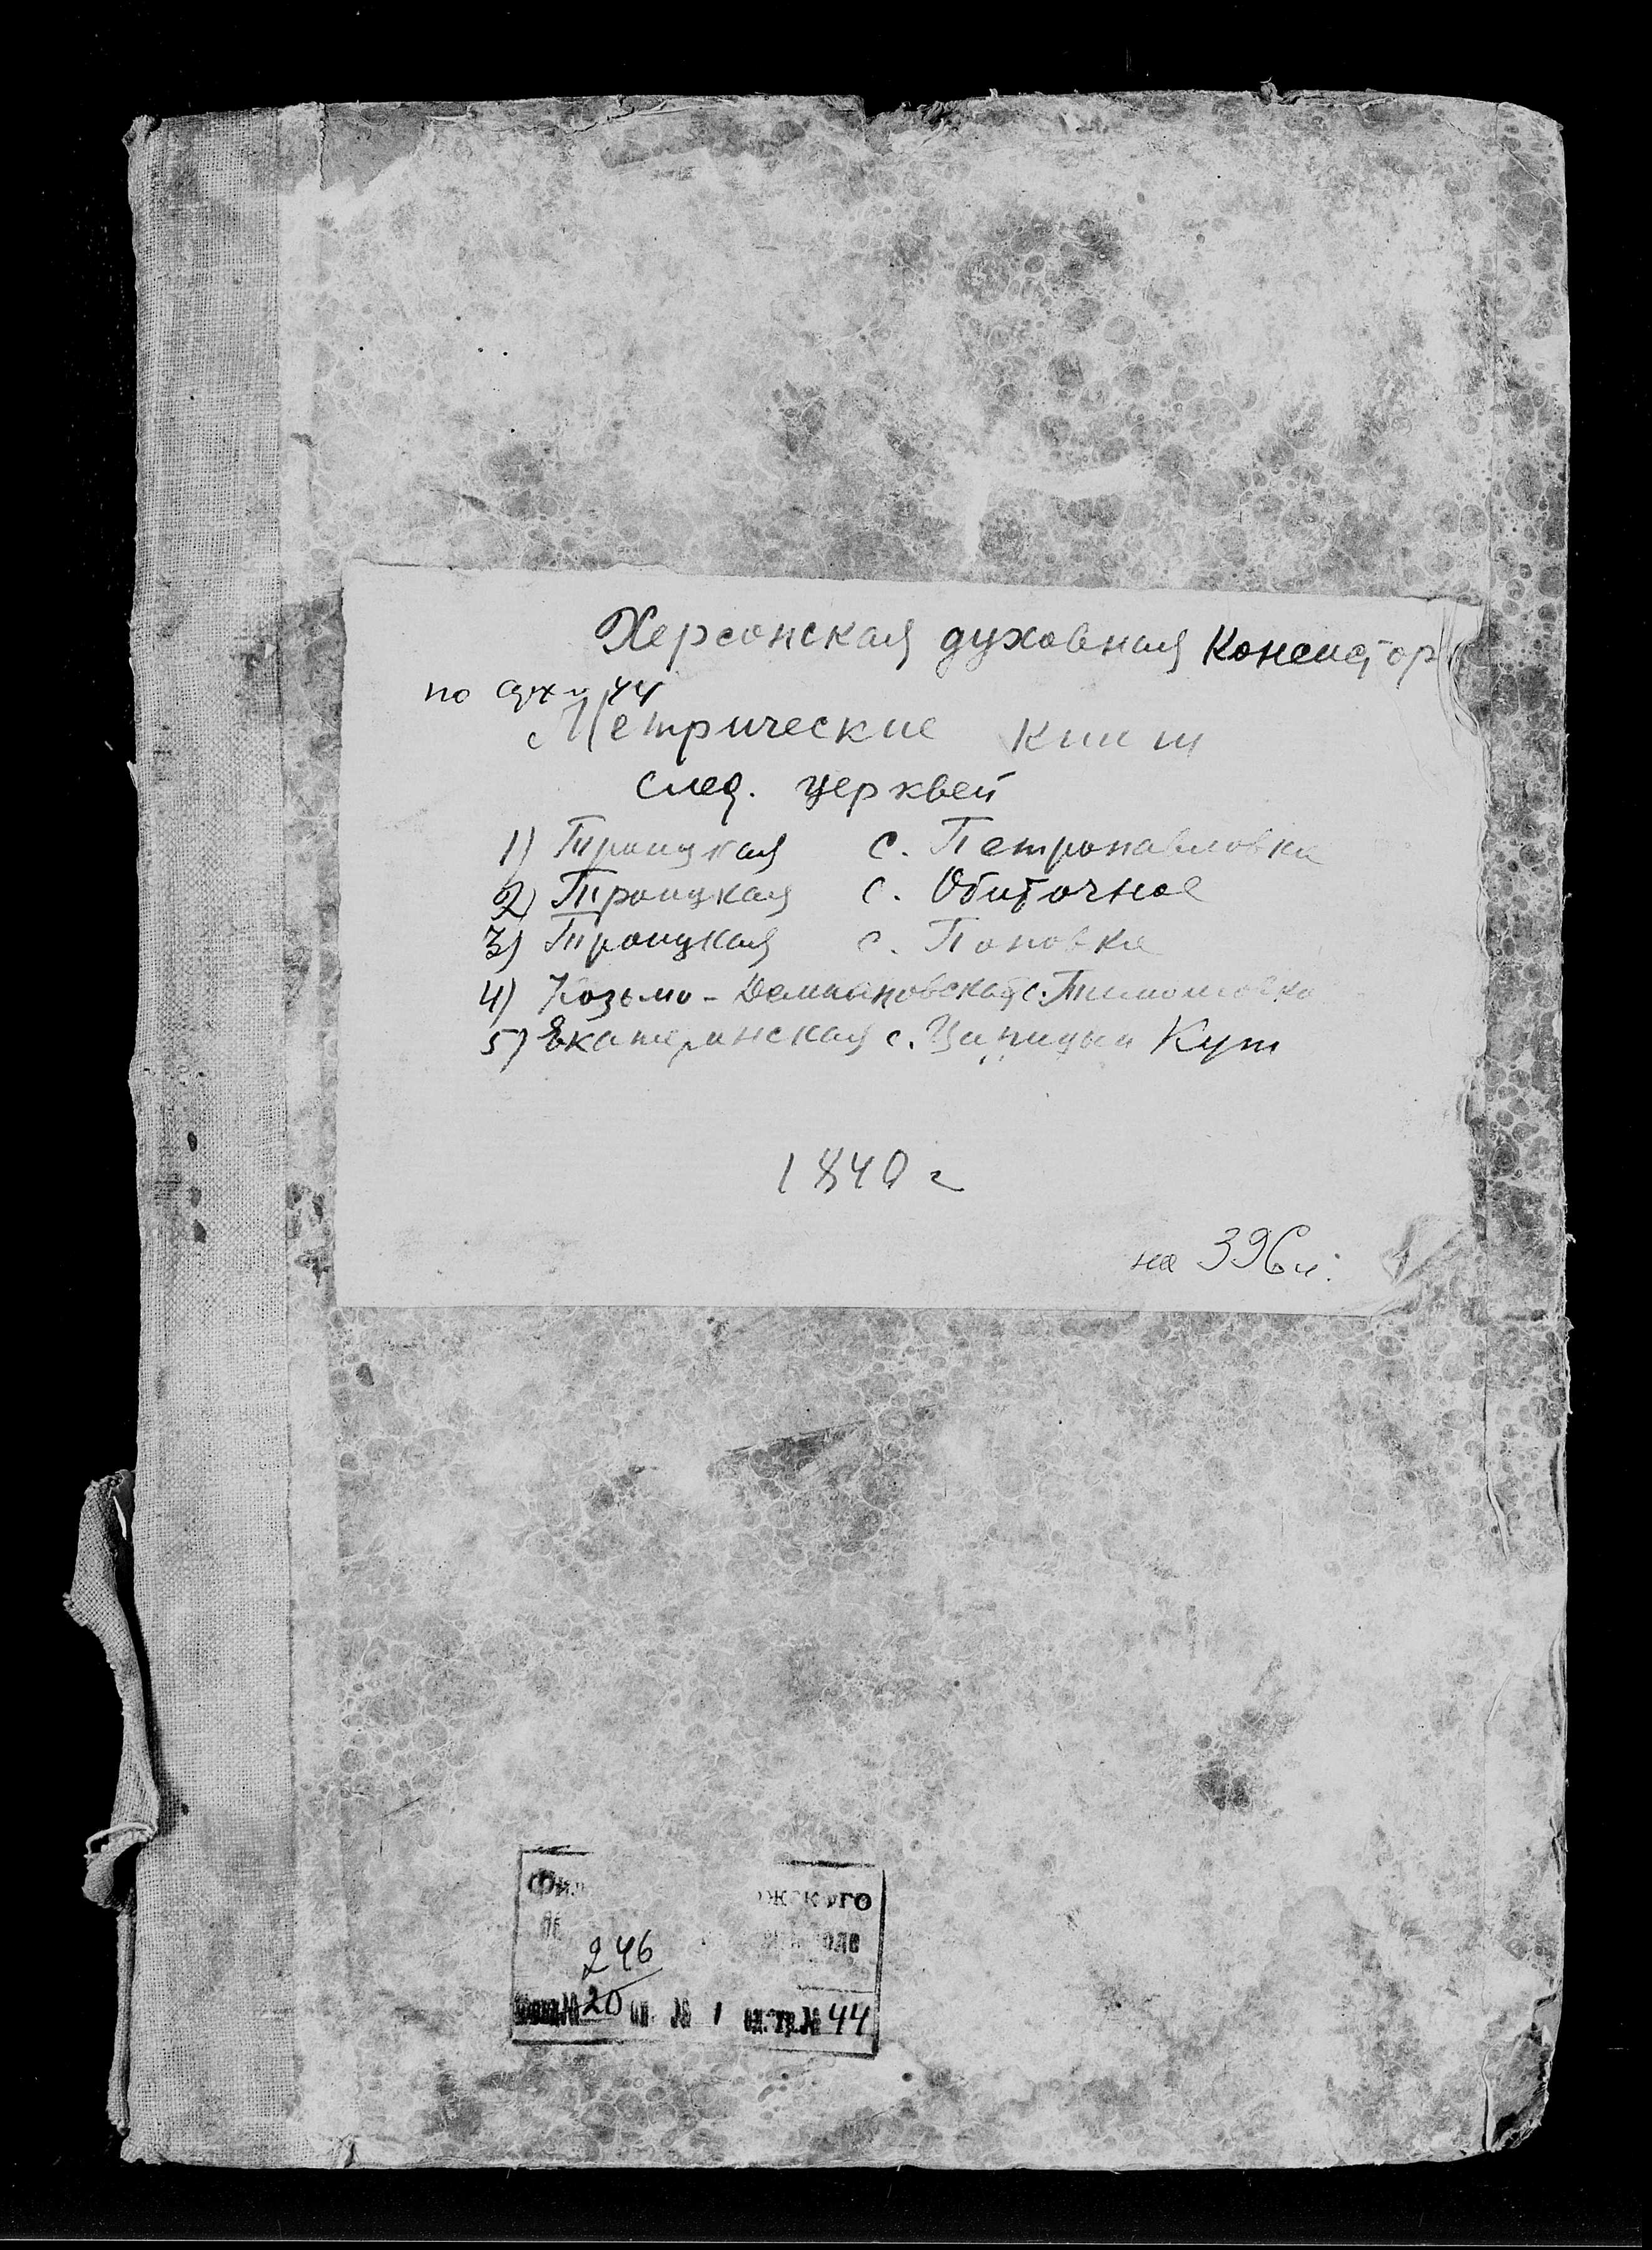 Херсонская духовная Консистор
по
44
Метрические книги
след. церквей
1) Троицкая с. Петропавловка
2) Троицкая с. Обиточное
3) Троицкая с. Поповка
4) Козьмо-Демьяновская с.
5) Екатеринская с. Кут
1840 г
на 396 л.
Фил жского
246
Фонд № 20 оп. № 1 ед. хр. № 44